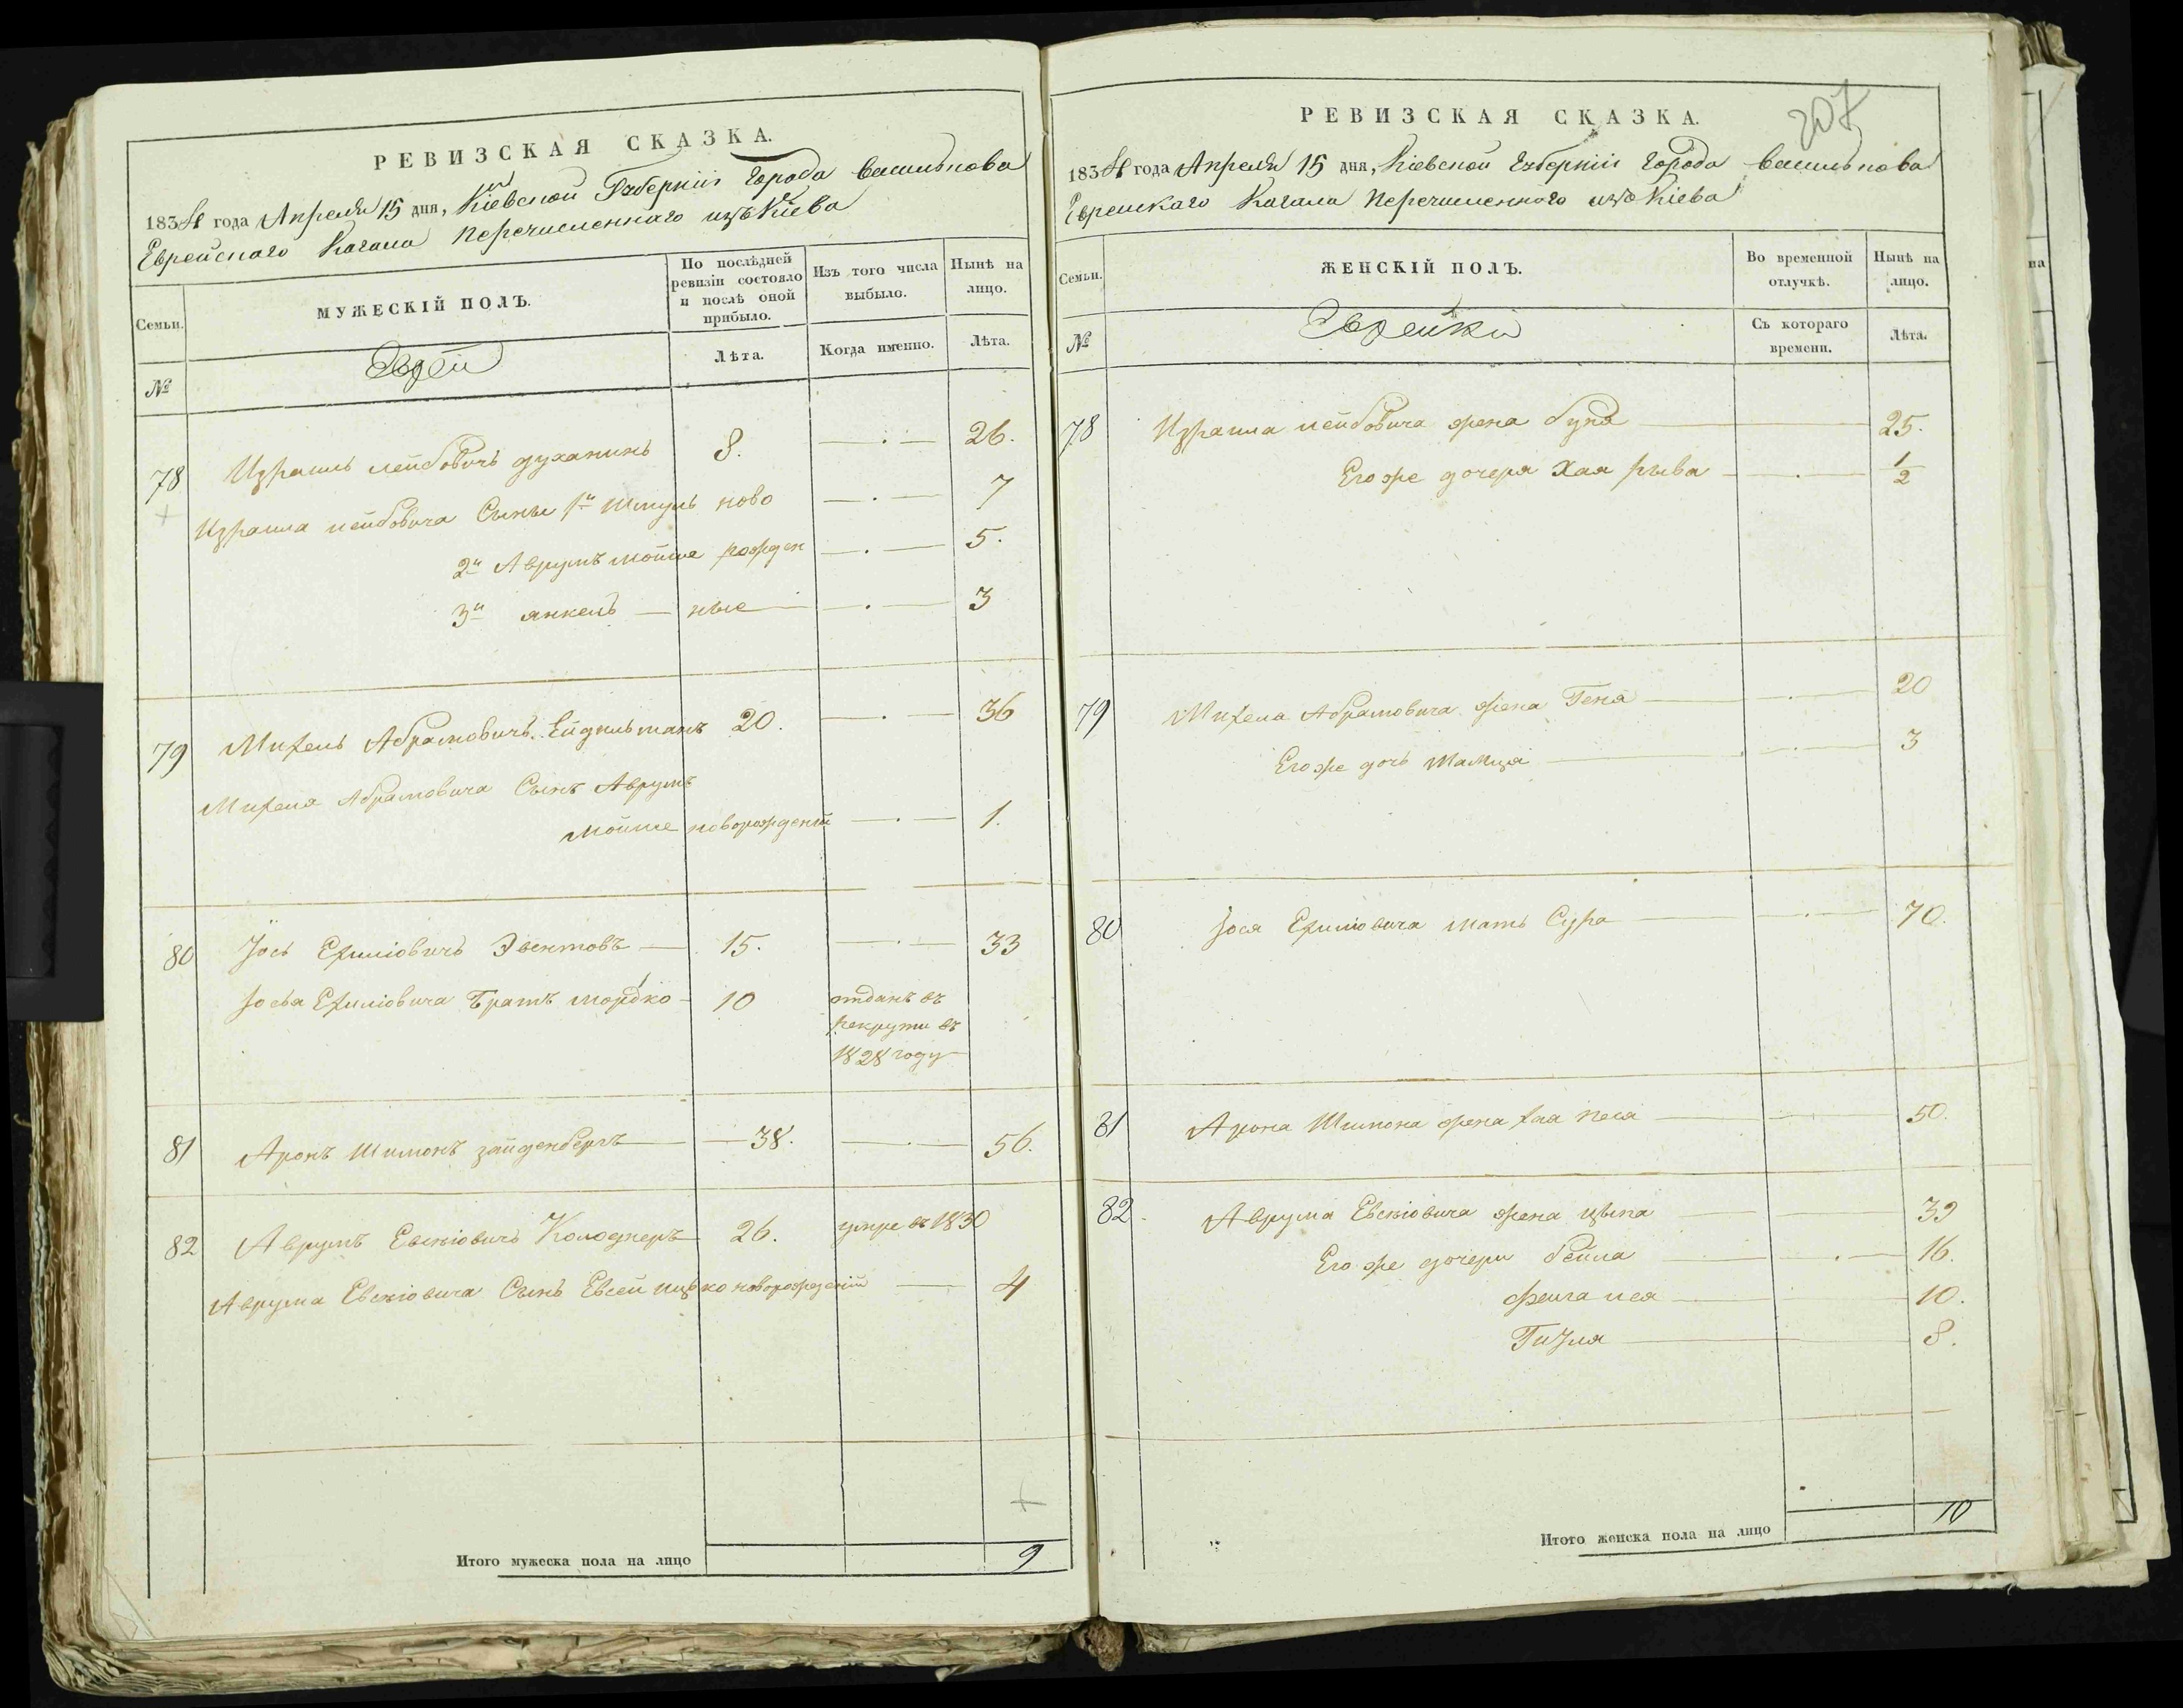 РЕВИЗСКАЯ СКАЗКА.
1834 года Апреля 15 дня, Кіевской Губерніи Города Василькова
Еврейскаго Кагала перечисленнаго изъ Кіева
Семьи.
№
МУЖЕСКІЙ ПОЛЪ.
Евреи
По послѣдней ревизіи состояло и послѣ оной прибыло.
Лѣта.
Изъ того числа выбыло.
Когда именно.
Нынѣ на лицо.
Лѣта.
78 Израиль лейбовичъ духанинъ 8. 26.
Израиля лейбовича Сыны 1й Шмуль ново 7
2й Аврумъ мойше рожден 5.
3й янкель ные 3
79 Михель Абрамовичъ Ейдильманъ 20. 36
Михеля Абрамовича Сынъ Аврумъ
мойше новорожденій 1.
80 Іось Ехиліовичъ Эвентовъ 15. 33
Іосья Ехиліовича Братъ мордко 10 отданъ въ
рекруты въ
1828 году
81 Аронъ Шимонъ зайденбергъ 38. 56.
82 Аврумъ Евсѣіовичъ Колоднеръ 26. умре въ 1830
Аврума Евсѣіовича Сынъ Евсей ицко новорожденій 4
Итого мужеска пола на лицо 9
207
РЕВИЗСКАЯ СКАЗКА.
1834 года Апреля 15 дня, Кіевской Губерніи Города Василькова
Еврейскаго Кагала перечисленнаго изъ Кіева
Семьи.
№
ЖЕНСКІЙ ПОЛЪ.
Еврейки
Во временной отлучкѣ.
Съ котораго времени.
Нынѣ на лицо.
Лѣта.
78 Израиля лейбовича жена буня 25.
Его же дочеря Хая рыва 1/2
79 Михеля Абрамовича жена Геня 20
Его же дочь
3
80 Іося Ехиліовича мать Сура 70.
81 Арона Шимона жена хая песя 50.
82 Аврума Евсѣіовича жена ципа 39
Его же дочери бейла 16.
фейга лея 10.
Гизля 8.
Итого женска пола на лицо 10